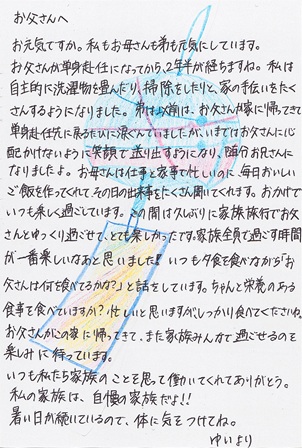 お父さんへ
お元気ですか。私もお母さんも弟も元気にしています。
お父さんが単身赴任になってから、2年半が経ちますね。私は
自主的に洗濯物を畳んだり、掃除をしたりと、家の手伝いをたく
さんするようになりました。弟は以前は、お父さんが家に帰ってきて
単身赴任先に戻るたびに泣くんでいましたが、いまではお父さんに心
配かけないように笑顔で送り出すようになり、随分お兄さんに
なりましたよ。お母さんは仕事と家事で忙しいのに、毎日おいしい
ご飯を作ってくれて、その日の出来事をたくさん聞いてくれます。おかげで
いつも楽しく過ごしています。この間は久しぶりに家族旅行でお父
さんとゆっくり過ごせて、とても楽しかったです。家族全員で過ごす時間
が一番楽しいなあと思いました！いつも夕食を食べながら「お
父さんは何を食べてるかな？」と話をしています。ちゃんと栄養のある
食事を食べていますか？忙しいと思いますが、しっかり食べてくださいね。
お父さんがこの家に帰ってきて、また家族みんなで過ごせるのを
楽しみに待っています。
いつも私たち家族のことを思って働いてくれてありがとう。
私の家族は、自慢の家族だよ！！
暑い日が続いているので、体に気をつけてね。
ゆいより